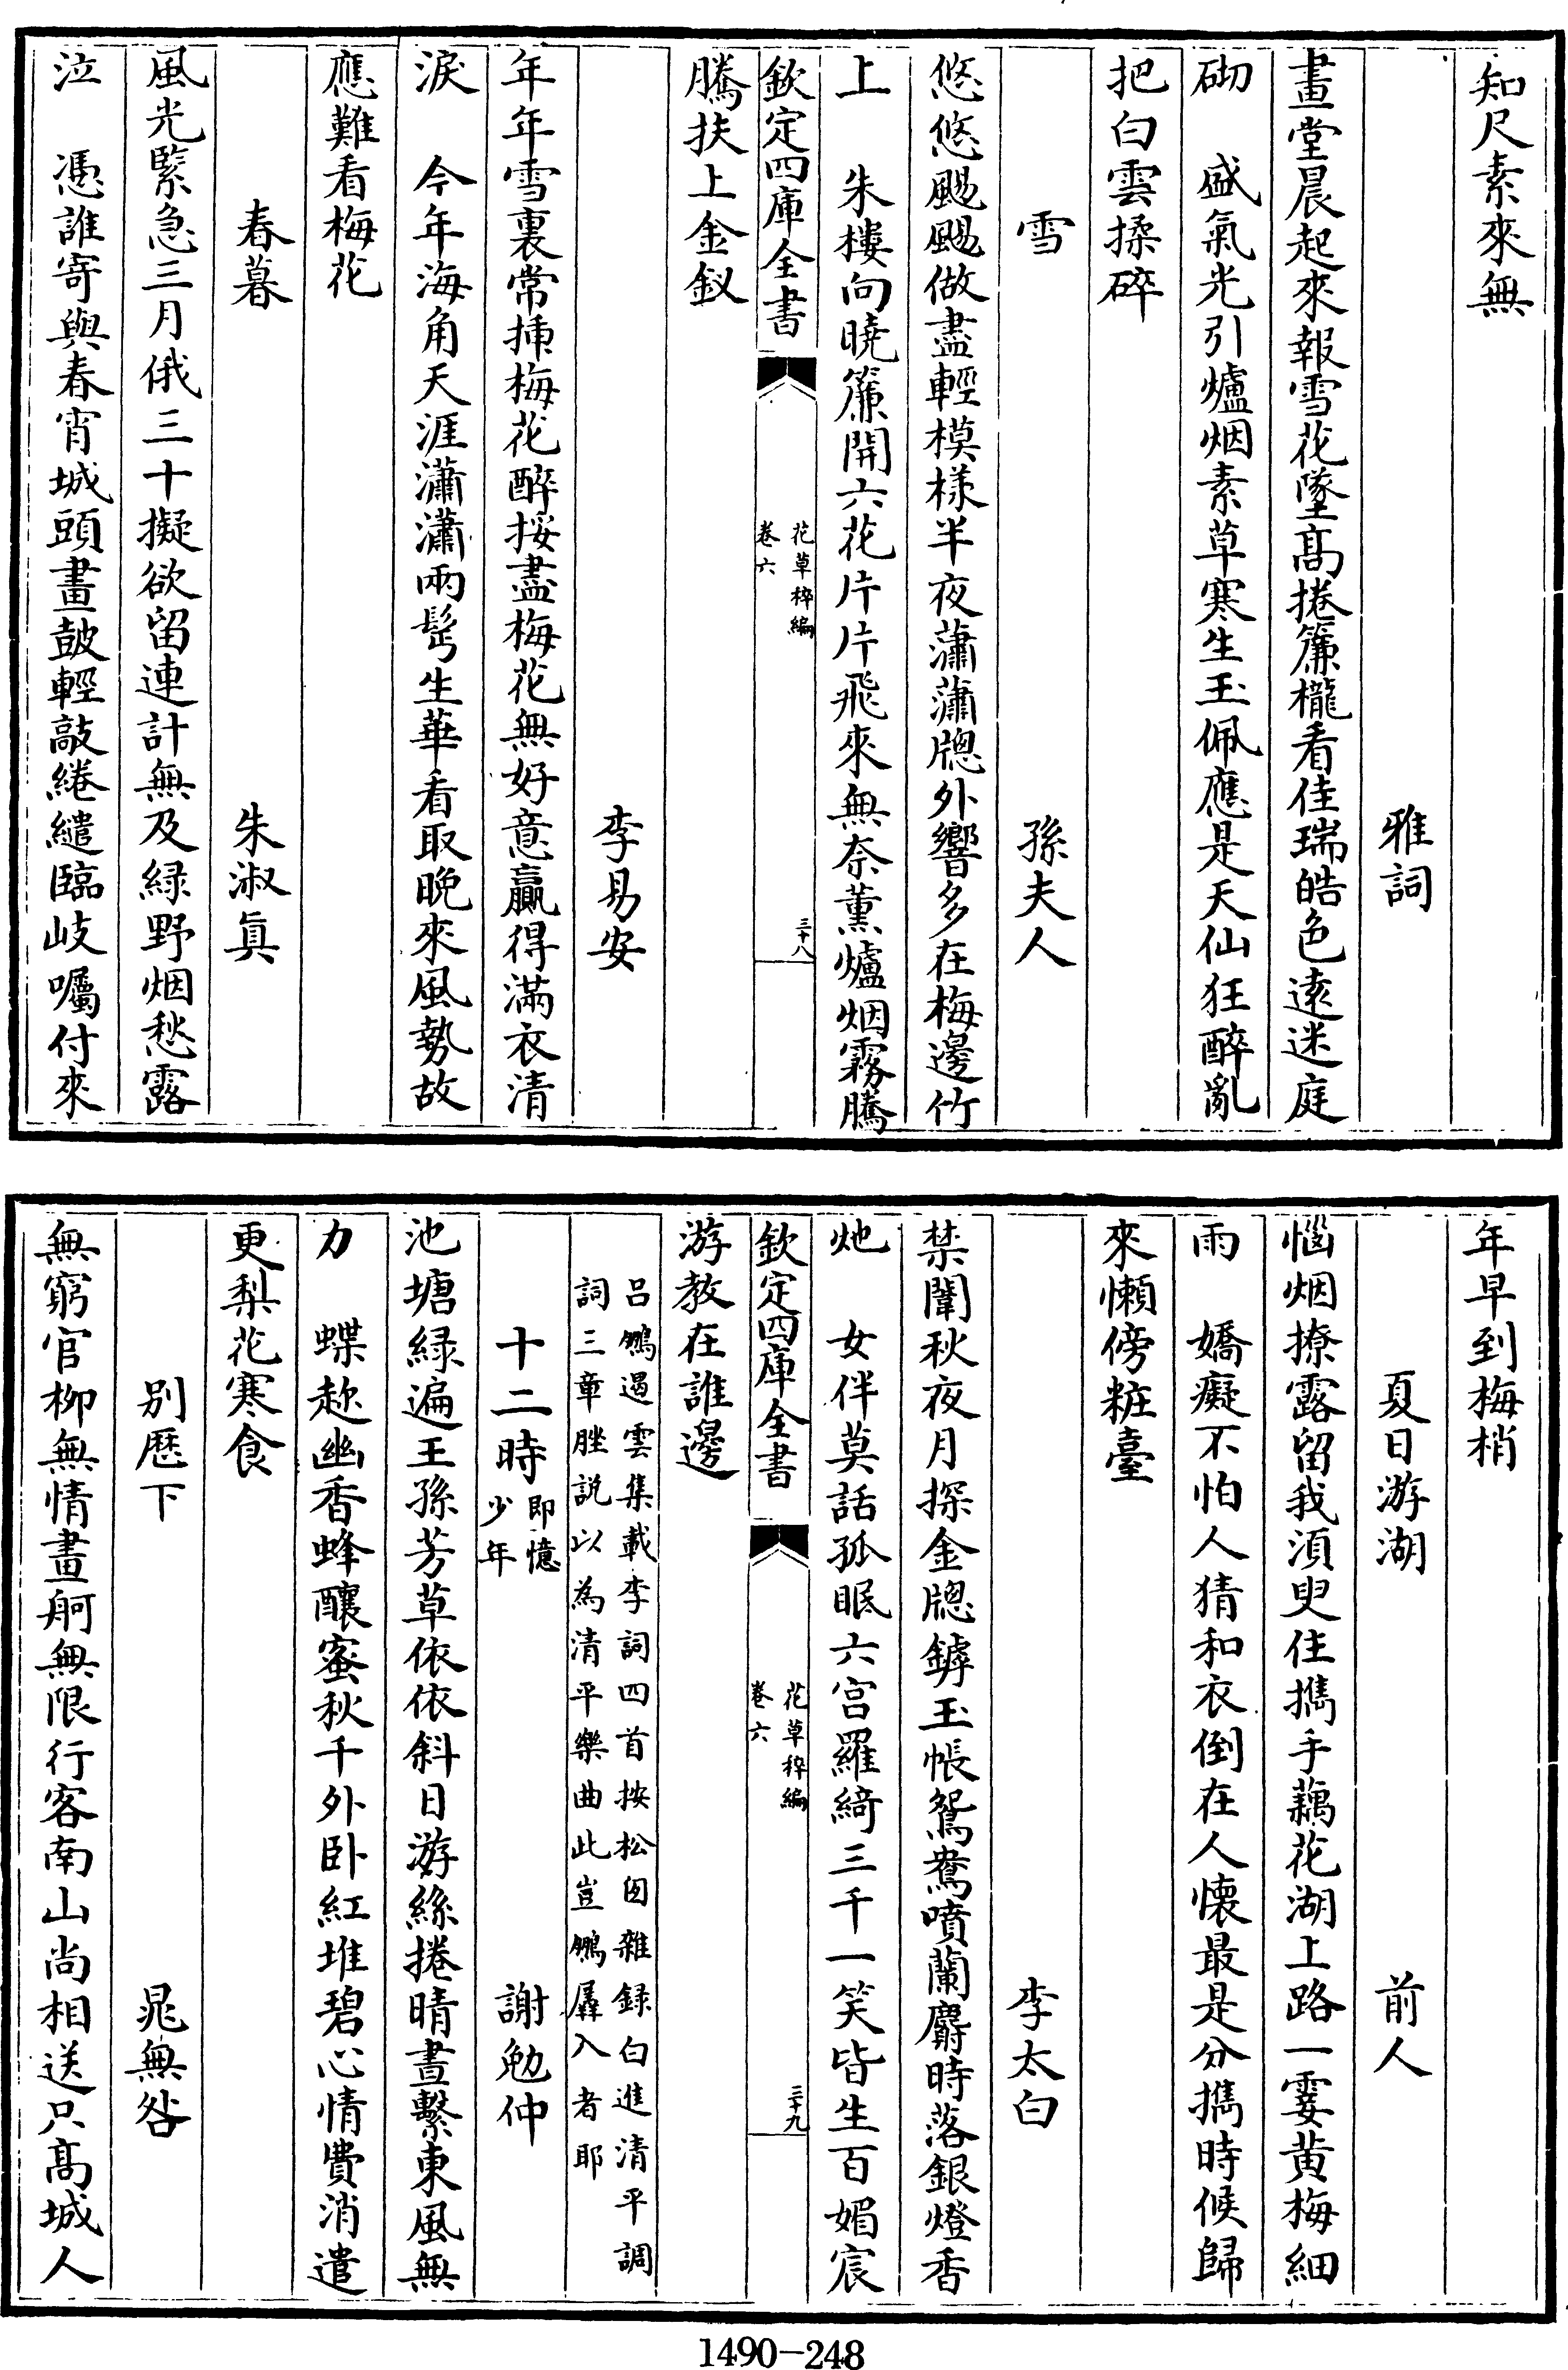 知尺素來無
雅詞
畫堂晨起來報雪花墜髙捲簾櫳看佳瑞皓色逺迷庭
砌　盛氣光引爐烟素草寒生玉佩應是天仙狂醉亂
把白雲揉碎
雪　孫夫人
悠悠颺颺做盡輕模様半夜蕭蕭牕外響多在梅邊竹
上　朱樓向曉簾開六花片片飛來無奈薰爐烟霧騰
欽定四庫全書　花草稡編　卷六　三十八
騰扶上金釵
李易安
年年雪裏常揷梅花醉挼盡梅花無好意贏得滿衣清
淚　今年海角天涯瀟瀟兩髩生華看取晩來風勢故
應難看梅花
春暮　朱淑真
風光緊急三月俄三十擬欲留連計無及緑野烟愁露
泣　憑誰寄與春宵城頭畫皷輕敲綣繾臨岐囑付來
年早到梅梢
夏日游湖　前人
惱烟撩露留我湏臾住擕手藕花湖上路一霎黄梅細
雨　嬌癡不怕人猜和衣倒在人懐最是分擕時候歸
來懶傍粧臺
李太白
禁闈秋夜月探金牕鏬玉帳鴛鴦噴蘭麝時落銀燈香
灺　女伴莫話孤眠六宫羅綺三千一笑皆生百媚宸
欽定四庫全書　花草稡編　卷六　三十九
游教在誰邊
吕鵬遏雲集載李詞四首按松囱雜録白進清平調
詞三章脞説以為清平樂曲此豈鵬羼入者耶
十二時　即憶少年　謝勉仲
池塘緑遍王孫芳草依依斜日游絲捲晴晝繫東風無
力　蝶趂幽香蜂釀蜜秋千外卧紅堆碧心情費消遣
更梨花寒食
别歴下　晁無咎
無窮官柳無情畫舸無限行客南山尚相送只髙城人
1490-248